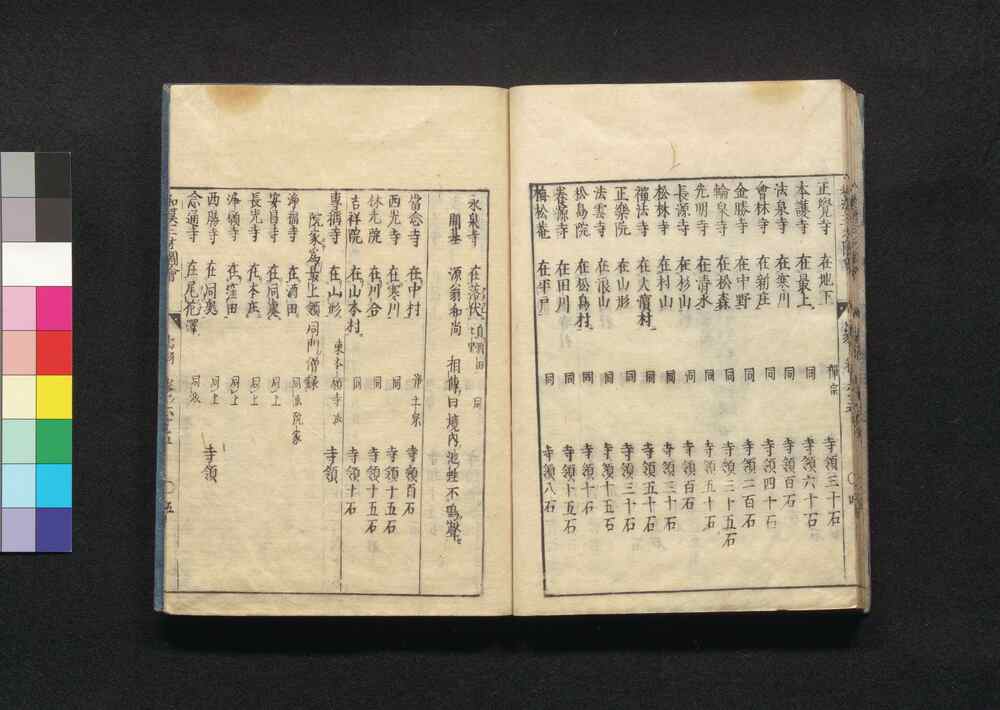 正覺寺 在地下 禪宗 寺領三十石
本護寺 在最上 同 寺領六十石
法泉寺 在寒川 同 寺領百石
會林寺 在新庄 同 寺領四十石
金勝寺 在中野 同 寺領二百石
輪泉寺 在松森 同 寺領三十五石
光明寺 在清水 同 寺領五十石
長源寺 在杉山 同 寺領百石
松林寺 在村山 同 寺領三十石
福法寺 在大寳村 同 寺領五十石
正樂院 在山形 同 寺領三十石
法雲寺 在浪山 同 寺領十五石
松島院 在松島村 同 寺領十石
春源寺 在田川 同 寺領十五石
梅松菴 在平戸 同 寺領八石
永泉寺 在落伏 同
開基 源翁和尚 相傳曰境內池蛙不鳴聲
當念寺 在中村 淨土宗 寺領百石
西光寺 在寒川 同 寺領十五石
休光院 在川合 同 寺領十五石
吉祥院 在山本村 同 寺領十石
專稱寺 在山形 東本願寺派 寺領
院家爲最上領同門僧録
淨福寺 在酒田 同派院家
安昌寺 在同奥 同上
長光寺 在本庄 同上
淨願寺 在窪田 同上
西勝寺 在同奥 同上 寺領
念通寺 在尾花澤 同派
和漢三才圖會 五